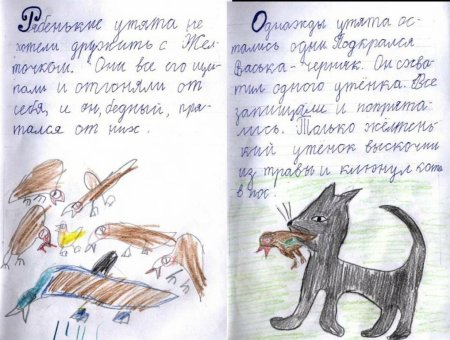 Рябенькие утята не
хотели дружить с Жел-
точком. Они все его щи-
пали и отгоняли от
себя, и он, бедный, пря-
тался от них.
Однажды утята ос-
тались одни Подкрался
Васька-черныж. Он схва-
тил одного утёнка. Все
запищали и попрята-
лись. Только жёлтень-
кий утёнок выскочил
из травы и клюнул кота
в нос.